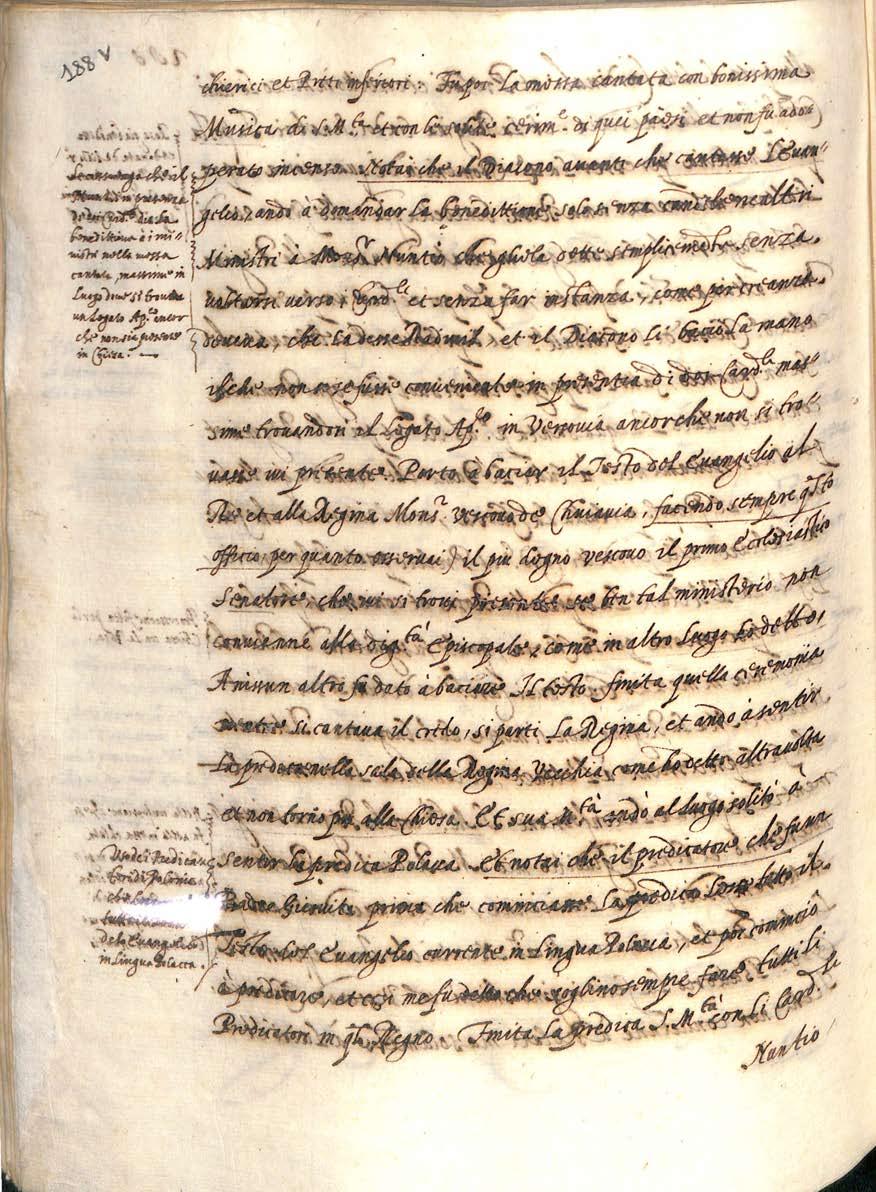 188 v
chierici et Preti inferiori. Fu poi La messa cantata con bonissima
Musica di S. M.tà et con le solite cerim.e di quei paesi et non fu ado=
perato incenso. Notai che il Diacono avanti che cantasse L'Evan=
gelio, andò à demandar La benedittione solo senza
Ministri à Mons.r Nuntio che gliela dette semplicemente senza
voltarsi verso i Card.li et senza far instanza, come per creanza
doveva, che La desse Radivil, et il Diacono Li baciò La mano
il che non so se fusse conveniente in presentia di doi Card.li mas=
sime trovandosi il Legato Ap.co in Versovia ancor che non si tro=
vasse ivi presente. Portò à baciar il Testo del Evangelio al
Re et alla Regina Mons.r Vescovo de Cuiavia, facendo sempre q.sto
offitio, per quanto osservai) il piu degno vescovo il primo Ecclesiastico
Senatore, che vi si trovi presente se ben tal ministerio non
convienne alla dig.tà Episcopale, come in altro Luogo ho detto,
A nissun altro fu dato à baciare Il testo. finita quella ceremonia
mentre si cantava il credo, si partì La Regina, et andò à sentir
La predica nella sala della Regina Vecchia come ho detto altra volta
et non tornò piu alla Chiesa. Et sua M.tà andò al Luogo solito à
sentir La predica Polacca. Et notai che il predicatore che fu un
Padre Giesuita prima che cominciasse La predica Lesse tutto il
Testo del Evangelio corrente in Lingua Polacca, et poi cominciò
à predicare, et cosi me fu detto che sogliono sempre fare tutti Li
Predicatori in q.l Regno. Finita La predica S. M.tà con Li Card.li
Nuntio
che il
Nuntio in presenza
di doi Card.li dia La
benedittione à i mi=
nistri nella messa
cantata, massime in
Luogo dove si trova
un Legato Ap.co ancor
che non sia presente
in Chiesa.
Uso dei Predica=
tori di Polonia
che
tutto il
del Evangelio
in Lingua Polacca.